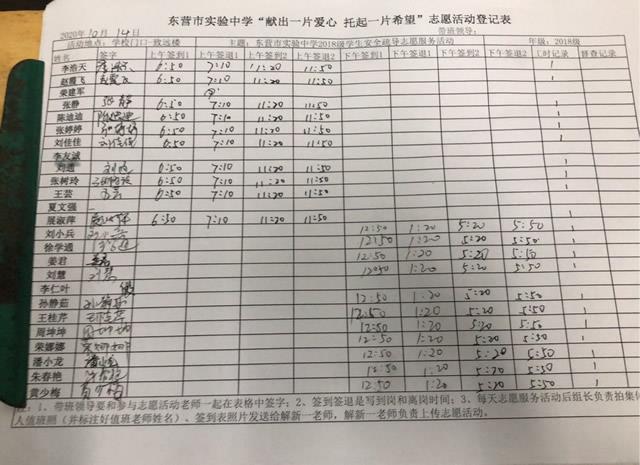 东营市实验中学“献出一片爱心 托起一片希望”志愿活动登记表
2020年10月14日 带班领导:
活动地点:学校门口—致远楼 主题:东营市实验中学2018级学生安全疏导志愿服务活动 年级:2018级
姓名 签字 上午签到1 上午签退1 上午签到2 上午签退2 下午签到1 下午签退1 下午签到2 下午签退2 工时记录 督查记录
李浩天 6:50 7:10 11:20 11:50
赵霞飞 6:50 7:10 11:20 11:50
荣建军
张静 张静 6:50 7:10 11:20 11:50
陈迪迪 陈迪迪 6:50 7:10 11:20 11:50
张婷婷 6:50 7:10 11:20 11:50
刘佳佳 刘佳佳 6:50 7:10 11:20 11:50
李友诚
刘遗 6:50 7:10 11:20 11:50
张树玲 6:50 7:10 11:20 11:50
王芸 王芸 6:50 7:10 11:20 11:50
夏文强
展淑萍 6:50 7:10 11:20 11:50
刘小兵 刘小兵 12:50 1:20 5:20 5:50
徐学通 12:50 1:20 5:20 5:50
姜君 姜君 12:50 1:20 5:20 5:50
刘慧 刘慧 12:50 1:20 5:20 5:50
李仁叶
孙静茹 12:50 1:20 5:20 5:50
王桂芹 王桂芹 12:50 1:20 5:20 5:50
周坤坤 周坤坤 12:50 1:20 5:20 5:50
荣娜娜 荣娜娜 12:50 1:20 5:20 5:50
潘小龙 12:50 1:20 5:20 5:50
朱春艳 12:50 1:20 5:20 5:50
黄少梅 12:50 1:20 5:20 5:50
注:1、带班领导要和参与志愿活动老师一起在表格中签字;2、签到签退是写到岗和离岗时间;3、每天志愿服务活动后组长负责拍集体
人值班照(并标注好值班老师姓名)、签到表照片发送给解新一老师,解新一老师负责上传志愿活动。